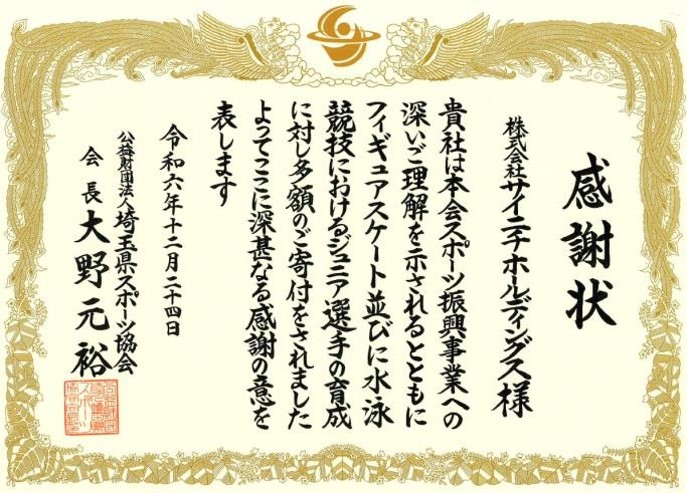 感謝状
株式会社サイニチホールディングス様
貴社は本会スポーツ振興事業への
深いご理解を示されるとともに
フィギュアスケート並びに水泳
競技におけるジュニア選手の育成
に対し多額のご寄付をされました
よってここに深甚なる感謝の意を
表します
令和六年十二月二十四日
公益財団法人埼玉県スポーツ協会
会長大野元裕